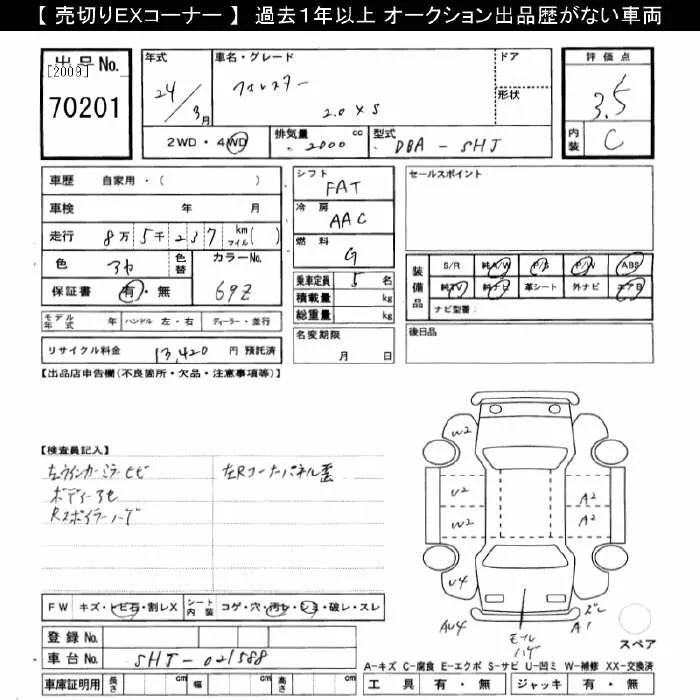 【 売切りEXコーナー 】 過去１年以上 オークション出品歴がない車両
出品No.
[2009]
70201
年式
24/3月
車名・グレード
フォレスター
2.0 XS
ドア
形状
評価点
3.5
内装 C
2WD・4WD
排気量 2000 cc
型式 DBA-SH5
車歴 自家用・( )
車検 年 月
走行 8万5千237 km マイル( )
色 アカ
色替
カラーNo. 69Z
保証書 有・無
モデル年式 年 ハンドル 左・右 ディーラー・並行
リサイクル料金 13,420 円 預託済
シフト FAT
冷房 AAC
燃料 G
乗車定員 5 名
積載量 kg
総重量 kg
名変期限
月 日
セールスポイント
装備品
S/R 純A/W P/S P/W ABS
純TV 純ナビ 革シート 外ナビ エアB
ナビ型番：
後日品
【出品店申告欄(不良箇所・欠品・注意事項等)】
【検査員記入】
左ウインカーミラーヒビ 左Rコーナーパネル歪
ボディー
Rスポイラーハゲ
W2
U2
W2
U4
AU4
A2
A2
ズレ
A1
モール
ハゲ
スペア
FW キズ・トビ石・割レX シート内装 コゲ・穴・汚レ・シミ・破レ・スレ
登録No.
車台No. SH5-021588
車庫証明用 長さ cm 幅 cm 高さ cm
A-キズ C-腐食 E-エクボ S-サビ U-凹ミ W-補修 XX-交換済
工具 有・無 ジャッキ 有・無